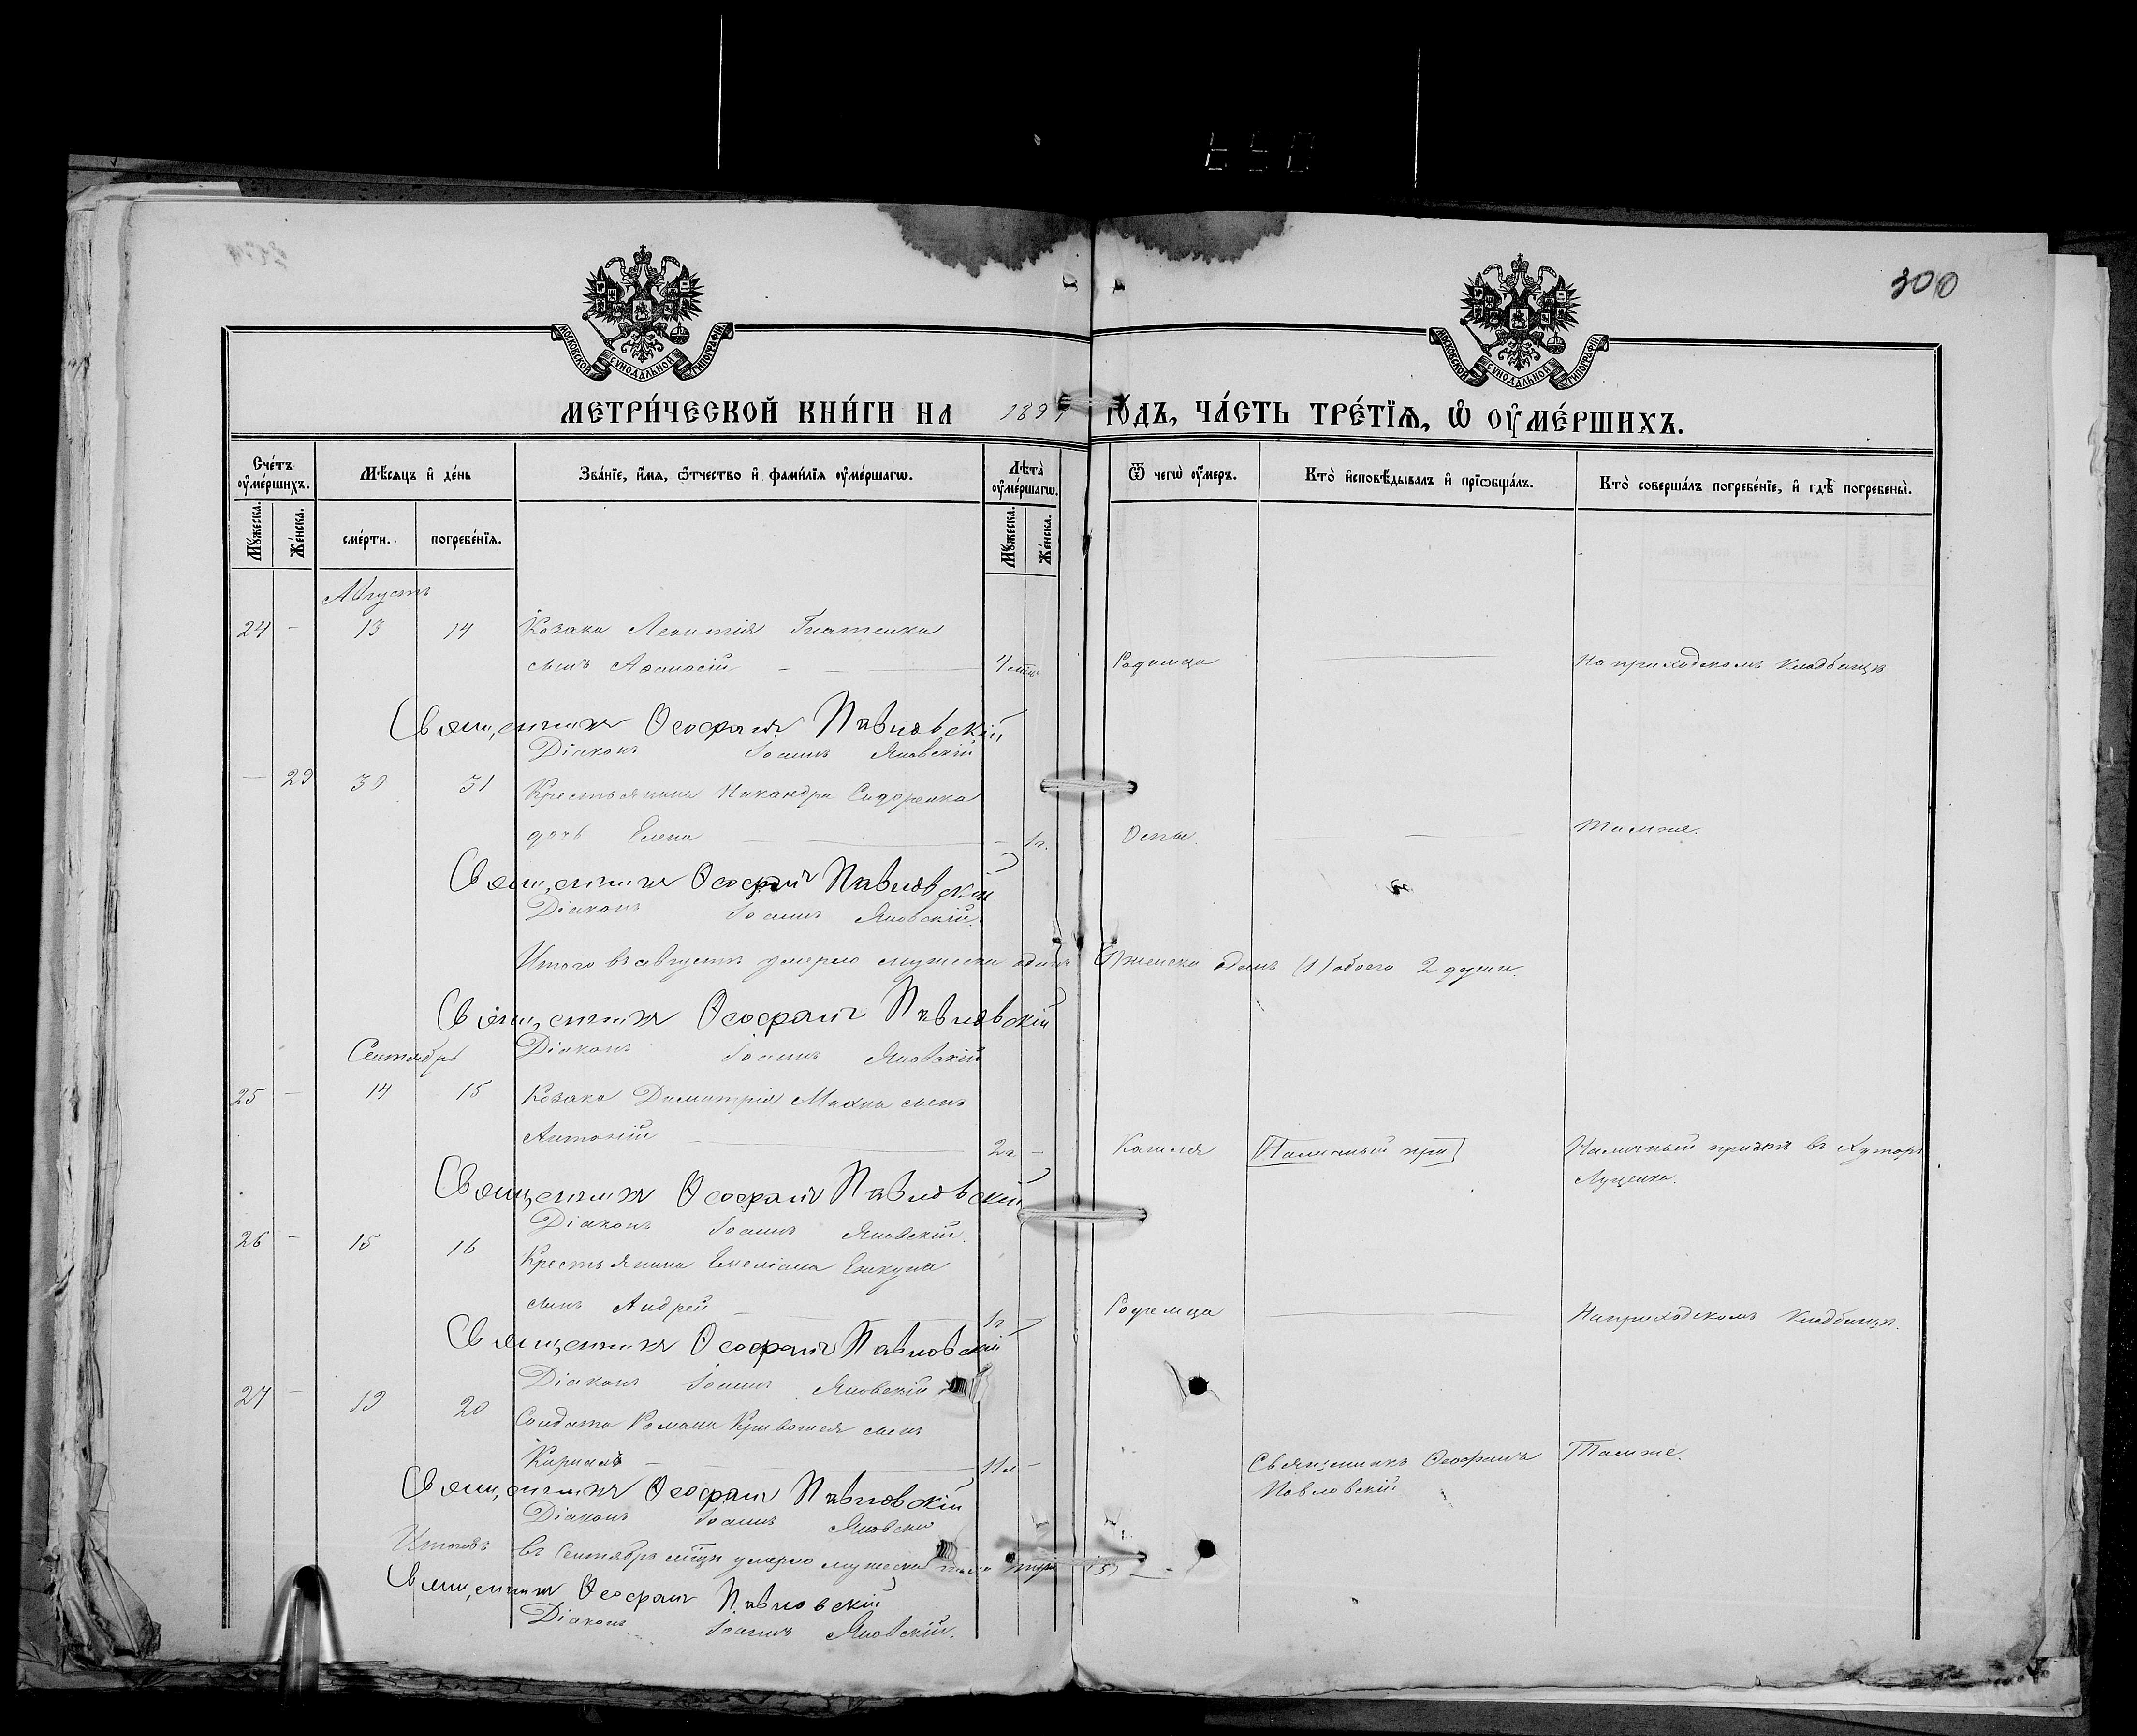 300
МОСКОВСКОЙ СѴНОДАЛЬНОЙ ТИПОГРАФІИ
МОСКОВСКОЙ СѴНОДАЛЬНОЙ ТИПОГРАФІИ
МЕТРИ́ЧЕСКОЙ КНИ́ГИ НА 189 ГО́ДЪ, ЧА́СТЬ ТРЕ́ТІѦ, Ѡ҆ ОУ҆МЕ́РШИХЪ.
Сче́тъ оу҆ме́ршихъ. Мѣ́сѧцъ и҆ де́нь Зва́нїе, и҆́мѧ, ѻ҆́тчество и҆ фами́лїѧ оу҆ме́ршагѡ. Лѣта̀ оу҆ме́ршагѡ. Ѿ чегѡ̀ оу҆́меръ. Кто̀ и҆сповѣ́дывалъ и҆ прїѡбща́лъ. Кто̀ соверша́лъ погребе́нїе, и҆ гдѣ̀ погребены̀.
Мꙋ́жеска. Же́нска. сме́рти. погребе́нїѧ. Мꙋ́жеска. Же́нска.
Августъ
24 - 13 14 Козака Леонтія Гнатенка
сынъ Аѳанасій - Родимца На приходскомъ кладбищѣ
Священникъ Ѳеофанъ Павловскій
Діаконъ Іоаннъ Яновскій
- 29 30 31 Крестьянина Никандра Сидоренка
дочь Елена - 1 г. Оспы. Тамже.
Священникъ Ѳеофанъ Павловскій
Діаконъ Іоаннъ Яновскій.
Итого въ августѣ умерло мужеска одинъ (1) женска одна (1) обоего 2 души.
Священникъ Ѳеофанъ Павловскій
Сентябрь Діаконъ Іоаннъ Яновскій
25 - 14 15 Козака Димитрія Махна сынъ
Антоній 2 г. - Кашля Наличный при Наличный причтъ въ хуторѣ
Луценка.
Священникъ Ѳеофанъ Павловскій
Діаконъ Іоаннъ Яновскій.
26 - 15 16 Крестьянина Емеліана
сынъ Андрей - 1 г Родимца На приходскомъ кладбищѣ.
Священникъ Ѳеофанъ Павловскій
Діаконъ Іоаннъ Яновскій
27 - 19 20 Солдата Романа сынъ
Кириллъ - 11 - Священникъ Ѳеофанъ Тамже.
Павловскій
Священникъ Ѳеофанъ Павловскій
Діаконъ Іоаннъ Яновскій
въ Сентябрѣ умерло мужеска три (3)
Священникъ Ѳеофанъ Павловскій
Діаконъ Іоаннъ Яновскій.